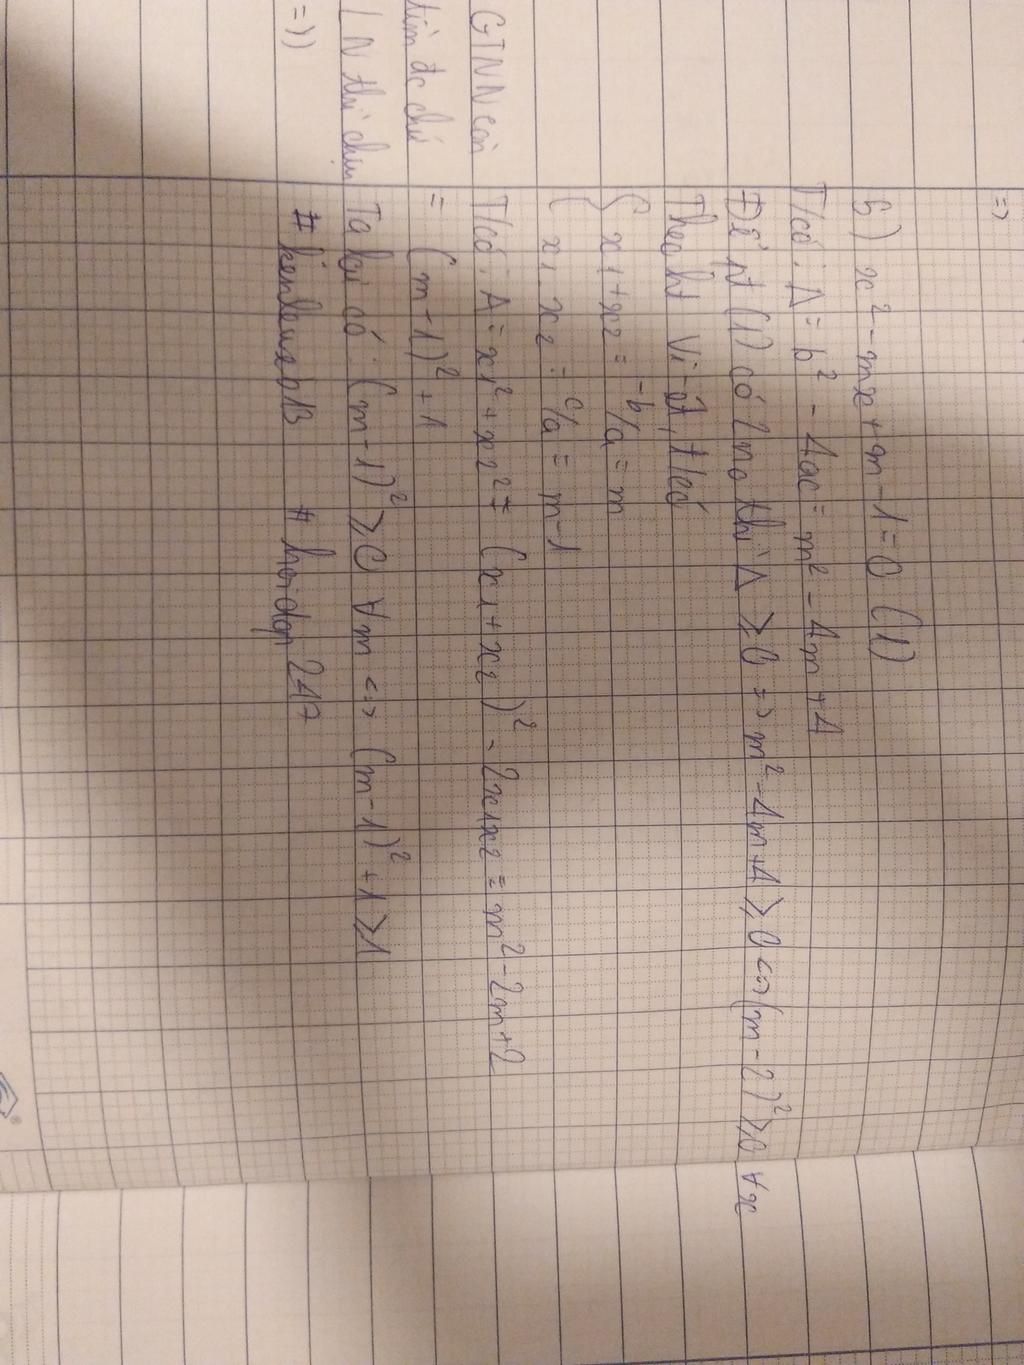 =>
b) x² - mx + m - 1 = 0 (1)
T/có: Δ = b² - 4ac = m² - 4m + 4
Để pt (1) có 2 no thì Δ ≥ 0 => m² - 4m + 4 ≥ 0 <=> (m - 2)² ≥ 0 ∀x
Theo ht Vi-ét, t/có
{ x1 + x2 = -b/a = m
x1 . x2 = c/a = m - 1
GTNN còn T/có: A = x1² + x2² = (x1 + x2)² - 2x1x2 = m² - 2m + 2
đc chứ = (m - 1)² + 1
LN thì chịu Ta lại có: (m - 1)² ≥ 0 ∀m <=> (m - 1)² + 1 ≥ 1
=)) # hoidap247